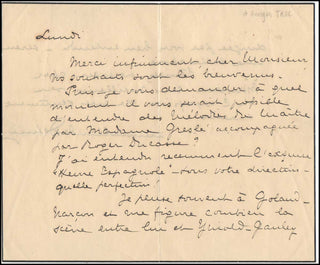 Lundi
Merci infiniment cher Monsieur
Vos souhaits sont les bienvenus.
Puis-je vous demander à quel
moment il vous serait possible
d'entendre des Mélodies du Maître
par Madame Greslé accompagnée
par Roger Ducasse?
J'ai entendu récemment l'exquise
"Heure Espagnole" - sous votre direction -
quelle perfection!
Je pense souvent à
et me figure combien la
scène entre lui et